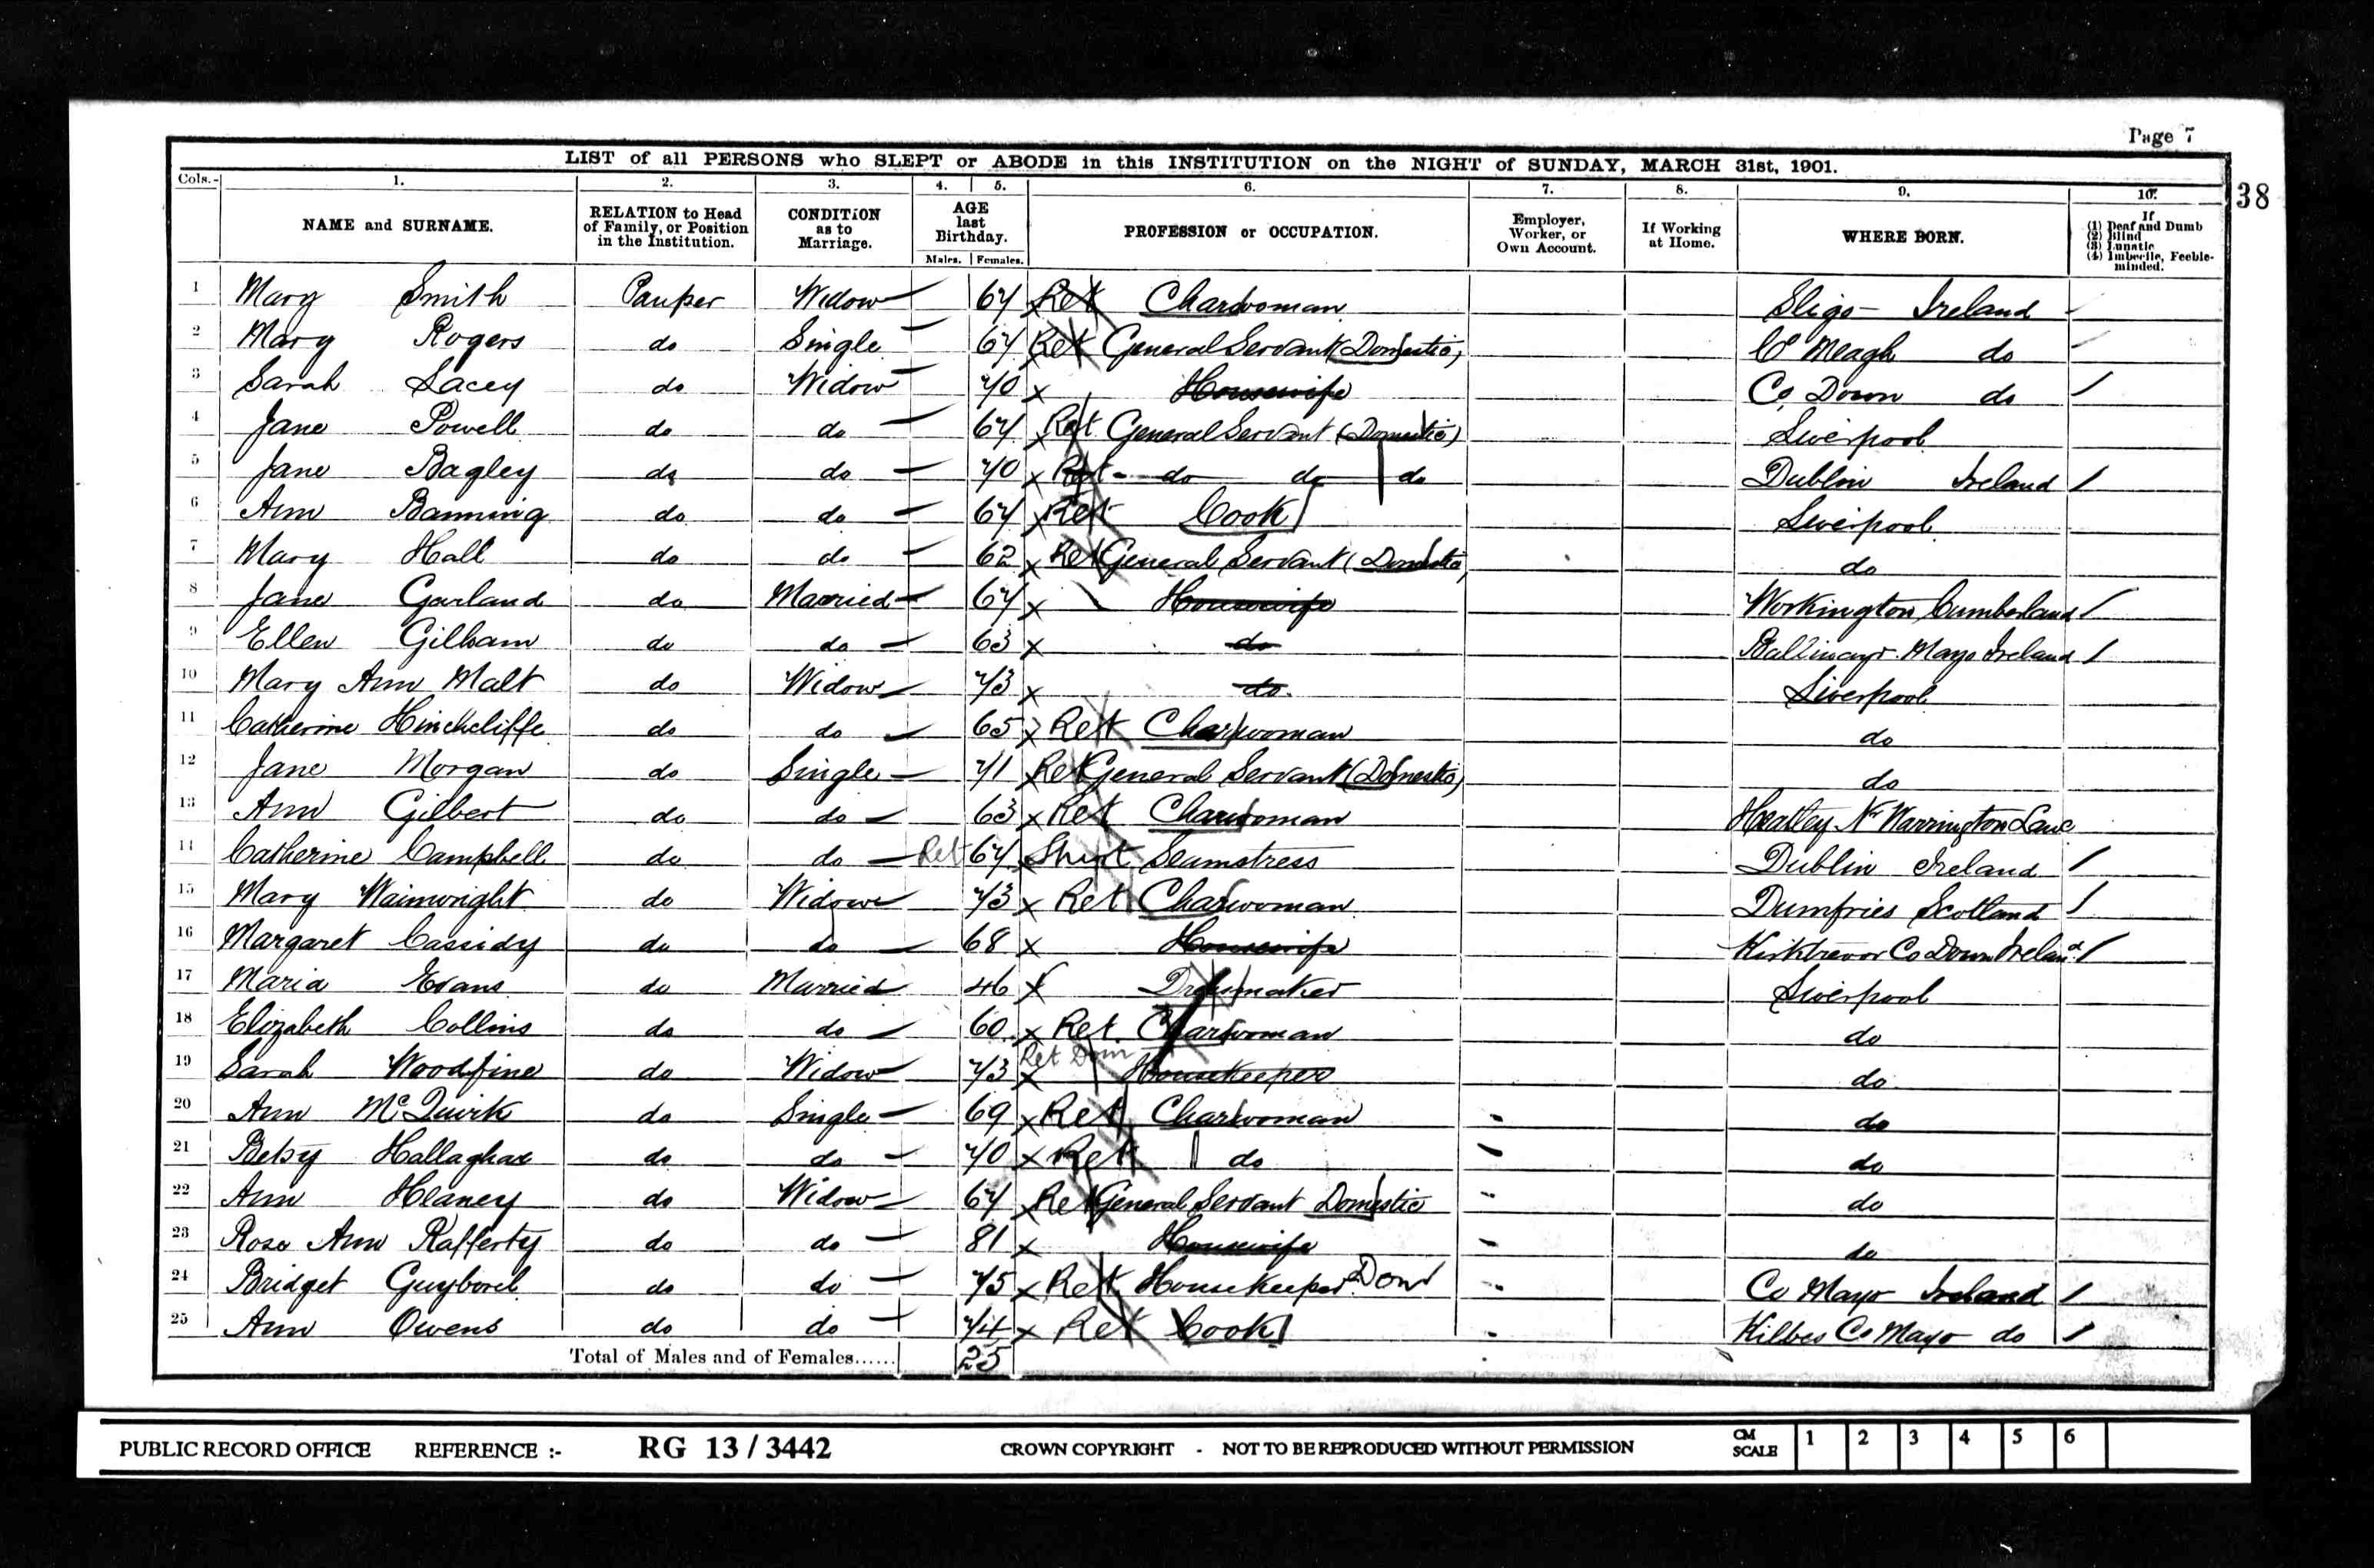 Page 7
LIST of all PERSONS who SLEPT or ABODE in this INSTITUTION on the NIGHT of SUNDAY, MARCH 31st, 1901.
38
Cols.- 1. 2. 3. 4. 5. 6. 7. 8. 9. 10.
NAME and SURNAME. RELATION to Head of Family, or Position in the Institution. CONDITION as to Marriage. AGE last Birthday. Males. Females. PROFESSION or OCCUPATION. Employer, Worker, or Own Account. If Working at Home. WHERE BORN. If (1) Deaf and Dumb (2) Blind (3) Lunatic (4) Imbecile, Feeble-minded.
1 Mary Smith Pauper Widow 67 Ret Charwoman Sligo - Ireland
2 Mary Rogers do Single 67 Ret General Servant (Domestic) Meagh do
3 Sarah Lacey do Widow 70 x Housewife Co. Down do
4 Jane Powell do do 67 x Ret General Servant (Domestic) Liverpool
5 Jane Bagley do do 70 x Ret - do do do Dublin Ireland
6 Ann Banning do do 67 x Ret Cook Liverpool
7 Mary Hall do do 62 x Ret General Servant (Domestic) do
8 Jane Garland do Married 67 x Housewife Workington Cumberland
9 Ellen Gilham do do 63 x do Mayo Ireland
10 Mary Ann Malt do Widow 73 x do Liverpool
11 Catherine Hinchcliffe do do 65 x Ret Charwoman do
12 Jane Morgan do Single 71 Ret General Servant (Domestic) do
13 Ann Gilbert do do 63 x Ret Charwoman Heatley Nr Warrington Lanc
14 Catherine Campbell do do Ret 67 x Shirt Seamstress Dublin Ireland
15 Mary Wainwright do Widow 73 x Ret Charwoman Dumfries Scotland
16 Margaret Cassidy do do 68 x Housewife Co Down Ireland
17 Maria Evans do Married 46 x Dressmaker Liverpool
18 Elizabeth Collins do do 60 x Ret. Charwoman do
19 Sarah Woodfine do Widow 73 x Ret Dom Housekeeper do
20 Ann McQuirk do Single 69 x Ret Charwoman do
21 Betsy Hallaghan do do 70 x Ret do do
22 Ann Heaney do Widow 67 x Ret General Servant Domestic do
23 Rose Ann Rafferty do do 81 x Housewife do
24 Bridget do do 75 x Ret Housekeeper Dom Co Mayo Ireland
25 Ann Owens do do 74 x Ret Cook Co Mayo do
Total of Males and of Females...... 25
PUBLIC RECORD OFFICE REFERENCE :- RG 13 / 3442 CROWN COPYRIGHT - NOT TO BE REPRODUCED WITHOUT PERMISSION CM SCALE 1 2 3 4 5 6